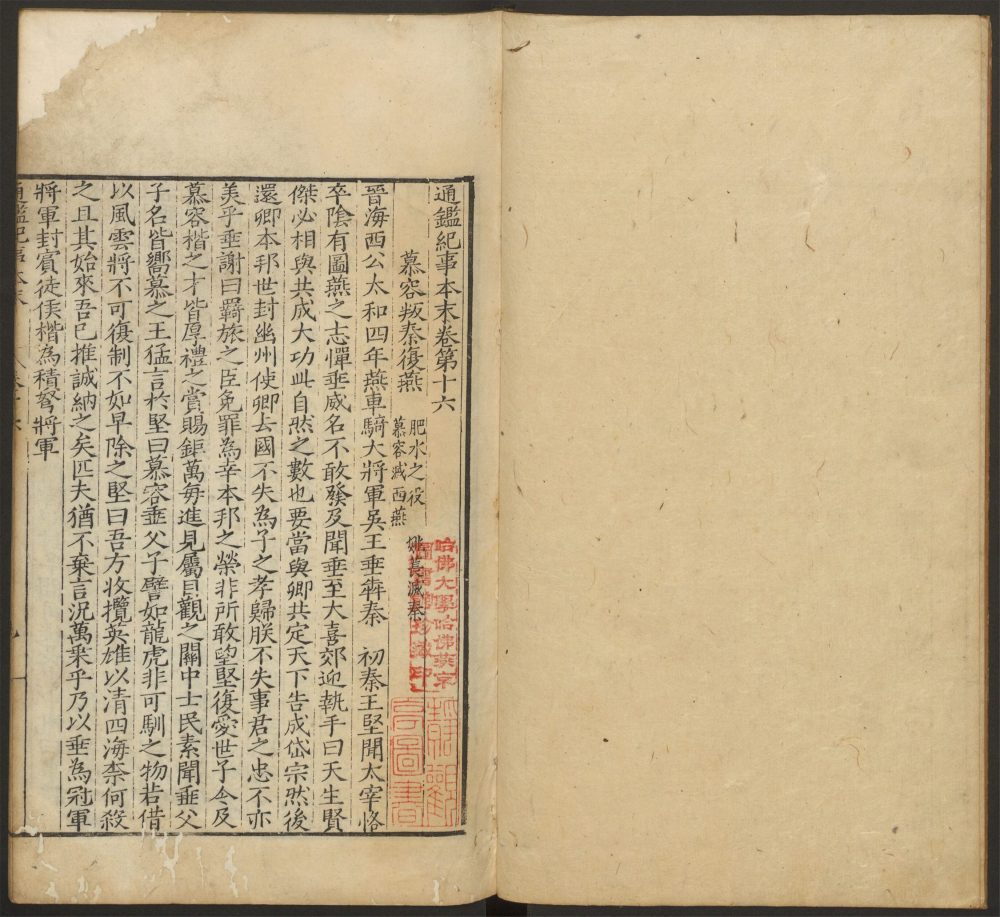 通鑑紀事本末卷第十六
慕容叛秦復燕
肥水之役
慕容滅西燕
姚萇滅秦
晉海西公太和四年燕車騎大將軍吳王垂奔秦 初秦王堅聞太宰恪
卒陰有圖燕之志憚垂威名不敢發及聞垂至大喜郊迎執手曰天生賢
傑必相與共成大功此自然之數也要當與卿共定天下告成岱宗然後
還卿本邦世封幽州使卿去國不失為子之孝歸朕不失事君之忠不亦
美乎垂謝曰羇旅之臣免罪為幸本邦之榮非所敢望堅復愛世子令及
慕容楷之才皆厚禮之賞賜鉅萬每進見屬目觀之關中士民素聞垂父
子名皆嚮慕之王猛言於堅曰慕容垂父子譬如龍虎非可馴之物若借
以風雲將不可復制不如早除之堅曰吾方收攬英雄以清四海柰何殺
之且其始來吾已推誠納之矣匹夫猶不棄言況萬乘乎乃以垂為冠軍
將軍封賓徒侯楷為積弩將軍
通鑑紀事本末
哈佛大學哈佛燕京
圖書館珍藏印